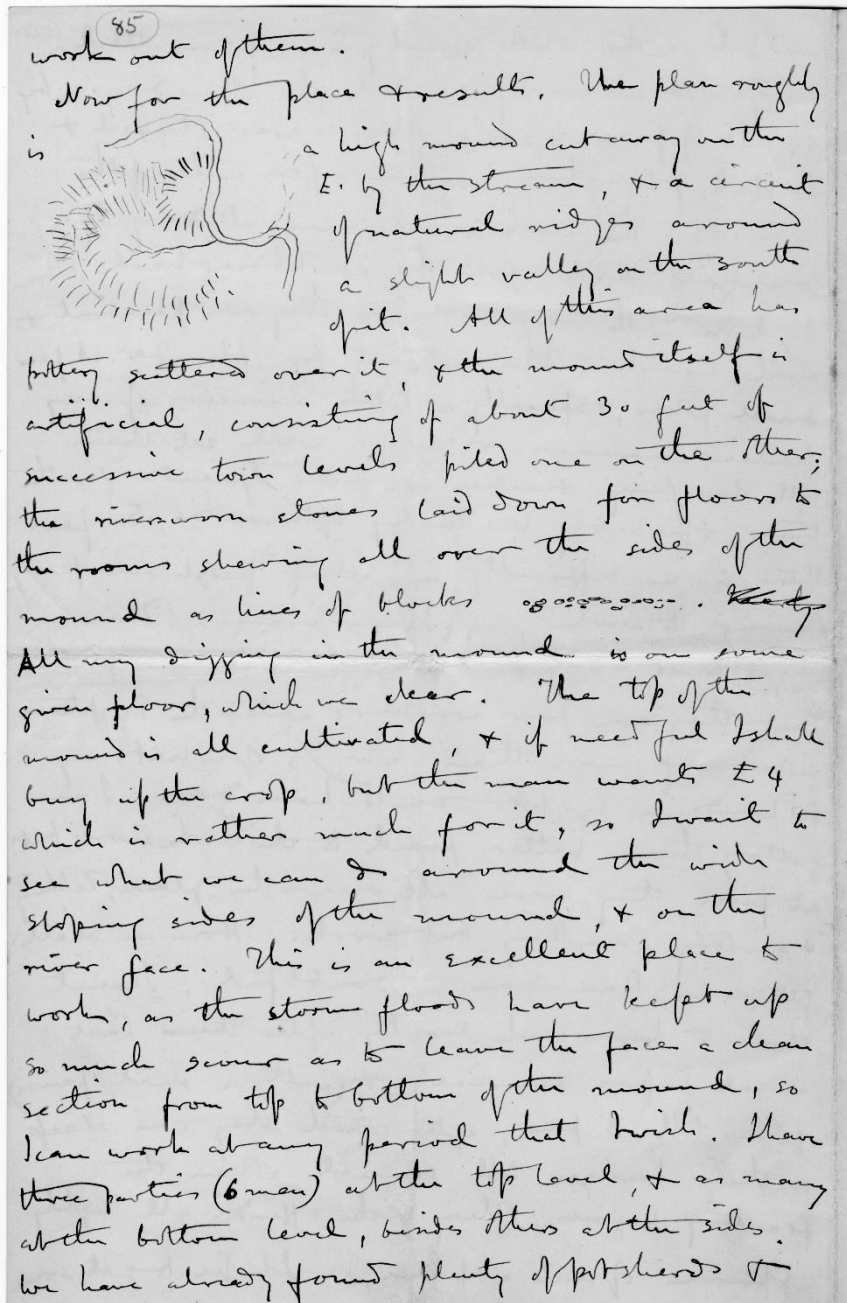 85
work out of them.
Now for the place & results. The plan roughly
is a high mound cut away on the
E. by the stream, & a circuit
of natural ridges around
a slight valley on the south
of it. All of this area has
pottery scattered over it, & the mound itself is
artificial, consisting of about 30 feet of
successive town levels piled one on the other;
the riverworn stones laid down for floors to
the rooms shewing all over the sides of the
mound as lines of blocks .
All my digging in the mound is on some
given floor, which we clear. The top of the
mound is all cultivated, & if needful I shall
buy up the crop, but the man wants £4
which is rather much for it, so I wait to
see what we can do around the wide
sloping sides of the mound, & on the
river face. This is an excellent place to
work, as the storm floods have kept up
so much scour as to leave the face a clean
section from top to bottom of the mound, so
I can work at any period that I wish. I have
three parties (6 men) at the top level, & as many
at the bottom level, besides others at the sides.
We have already found plenty of potsherds &